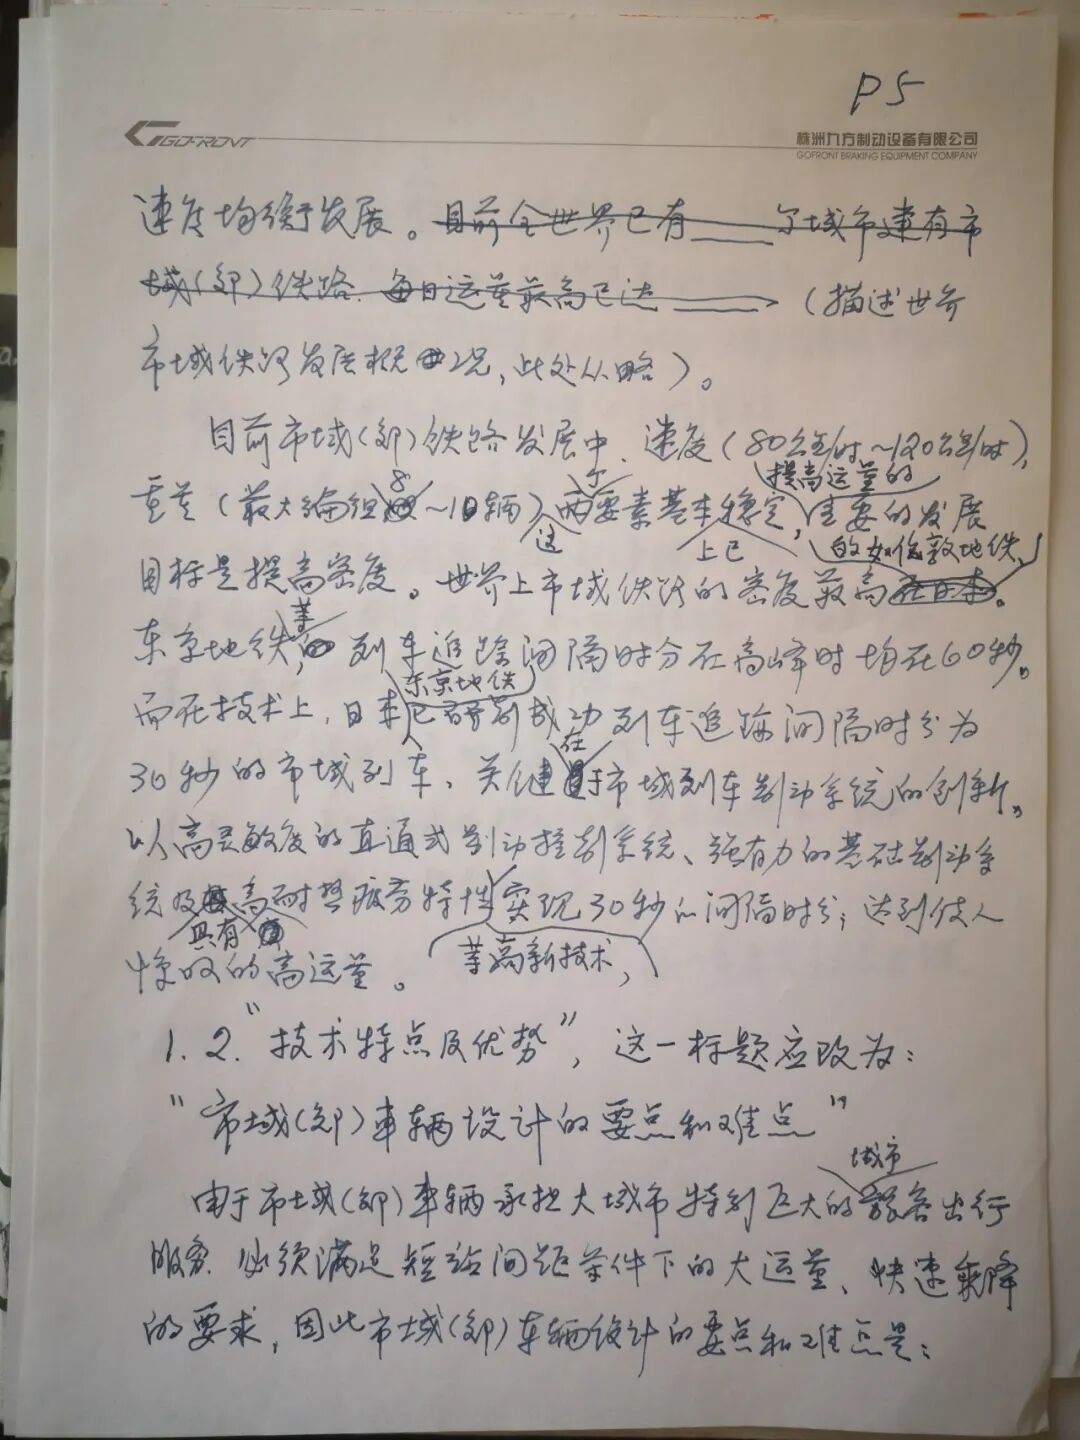 P5
GOFRONT
株洲九方制动设备有限公司
GOFRONT BRAKING EQUIPMENT COMPANY
速度均衡发展。目前全世界已有____个城市建有市
域(郊)铁路.每日运量最高已达____(描述世界
市域铁路发展概况,此处从略)。
目前市域(郊)铁路发展中,速度(80公里/时~120公里/时),
提高运量的
重量(最大编组8~10辆)这两个要素基本上已稳定,主要的发展
的如伦敦地铁、
目标是提高密度。世界上市域铁路的密度最高在日本。
东京地铁等,列车追踪间隔时分在高峰时均在60秒。
东京地铁
而在技术上,日本已研制成功列车追踪间隔时分为
30秒的市域列车,关键在于市域列车制动系统的创新。
以高灵敏度的直通式制动控制系统、强有力的基础制动系
统及具有高耐热疲劳特性实现30秒的间隔时分;达到使人
等高新技术,
惊叹的高运量。
1.2."技术特点及优势",这一标题应改为:
"市域(郊)车辆设计的要点和难点"
城市
由于市域(郊)车辆承担大城市特别巨大的旅客出行
服务.必须满足短站间距条件下的大运量、快速乘降
的要求,因此市域(郊)车辆设计的要点和难点是: